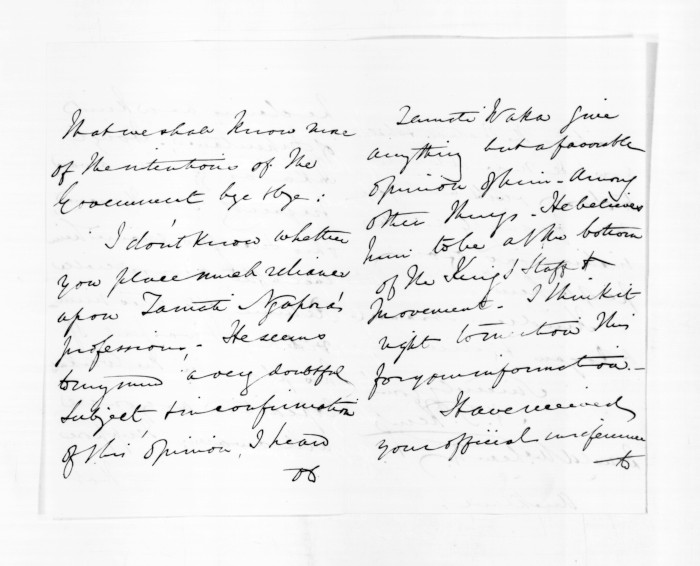 That we shall Know more
of the intentions of the
Government bye & bye:
I don't Know whether
you place much reliance
upon Tamati Ngapora's
professions, - He seems
to my mind a very doubtful
Subject & in confirmation
of this opinion, I heard
Tamati Waka give
anything but a favorable
opinion of him - Among
other things - He believes
him to be at the bottom
of the King's Staff &
Movement - I think it
right to mention this
for your information -
I have received
your official in reference
to